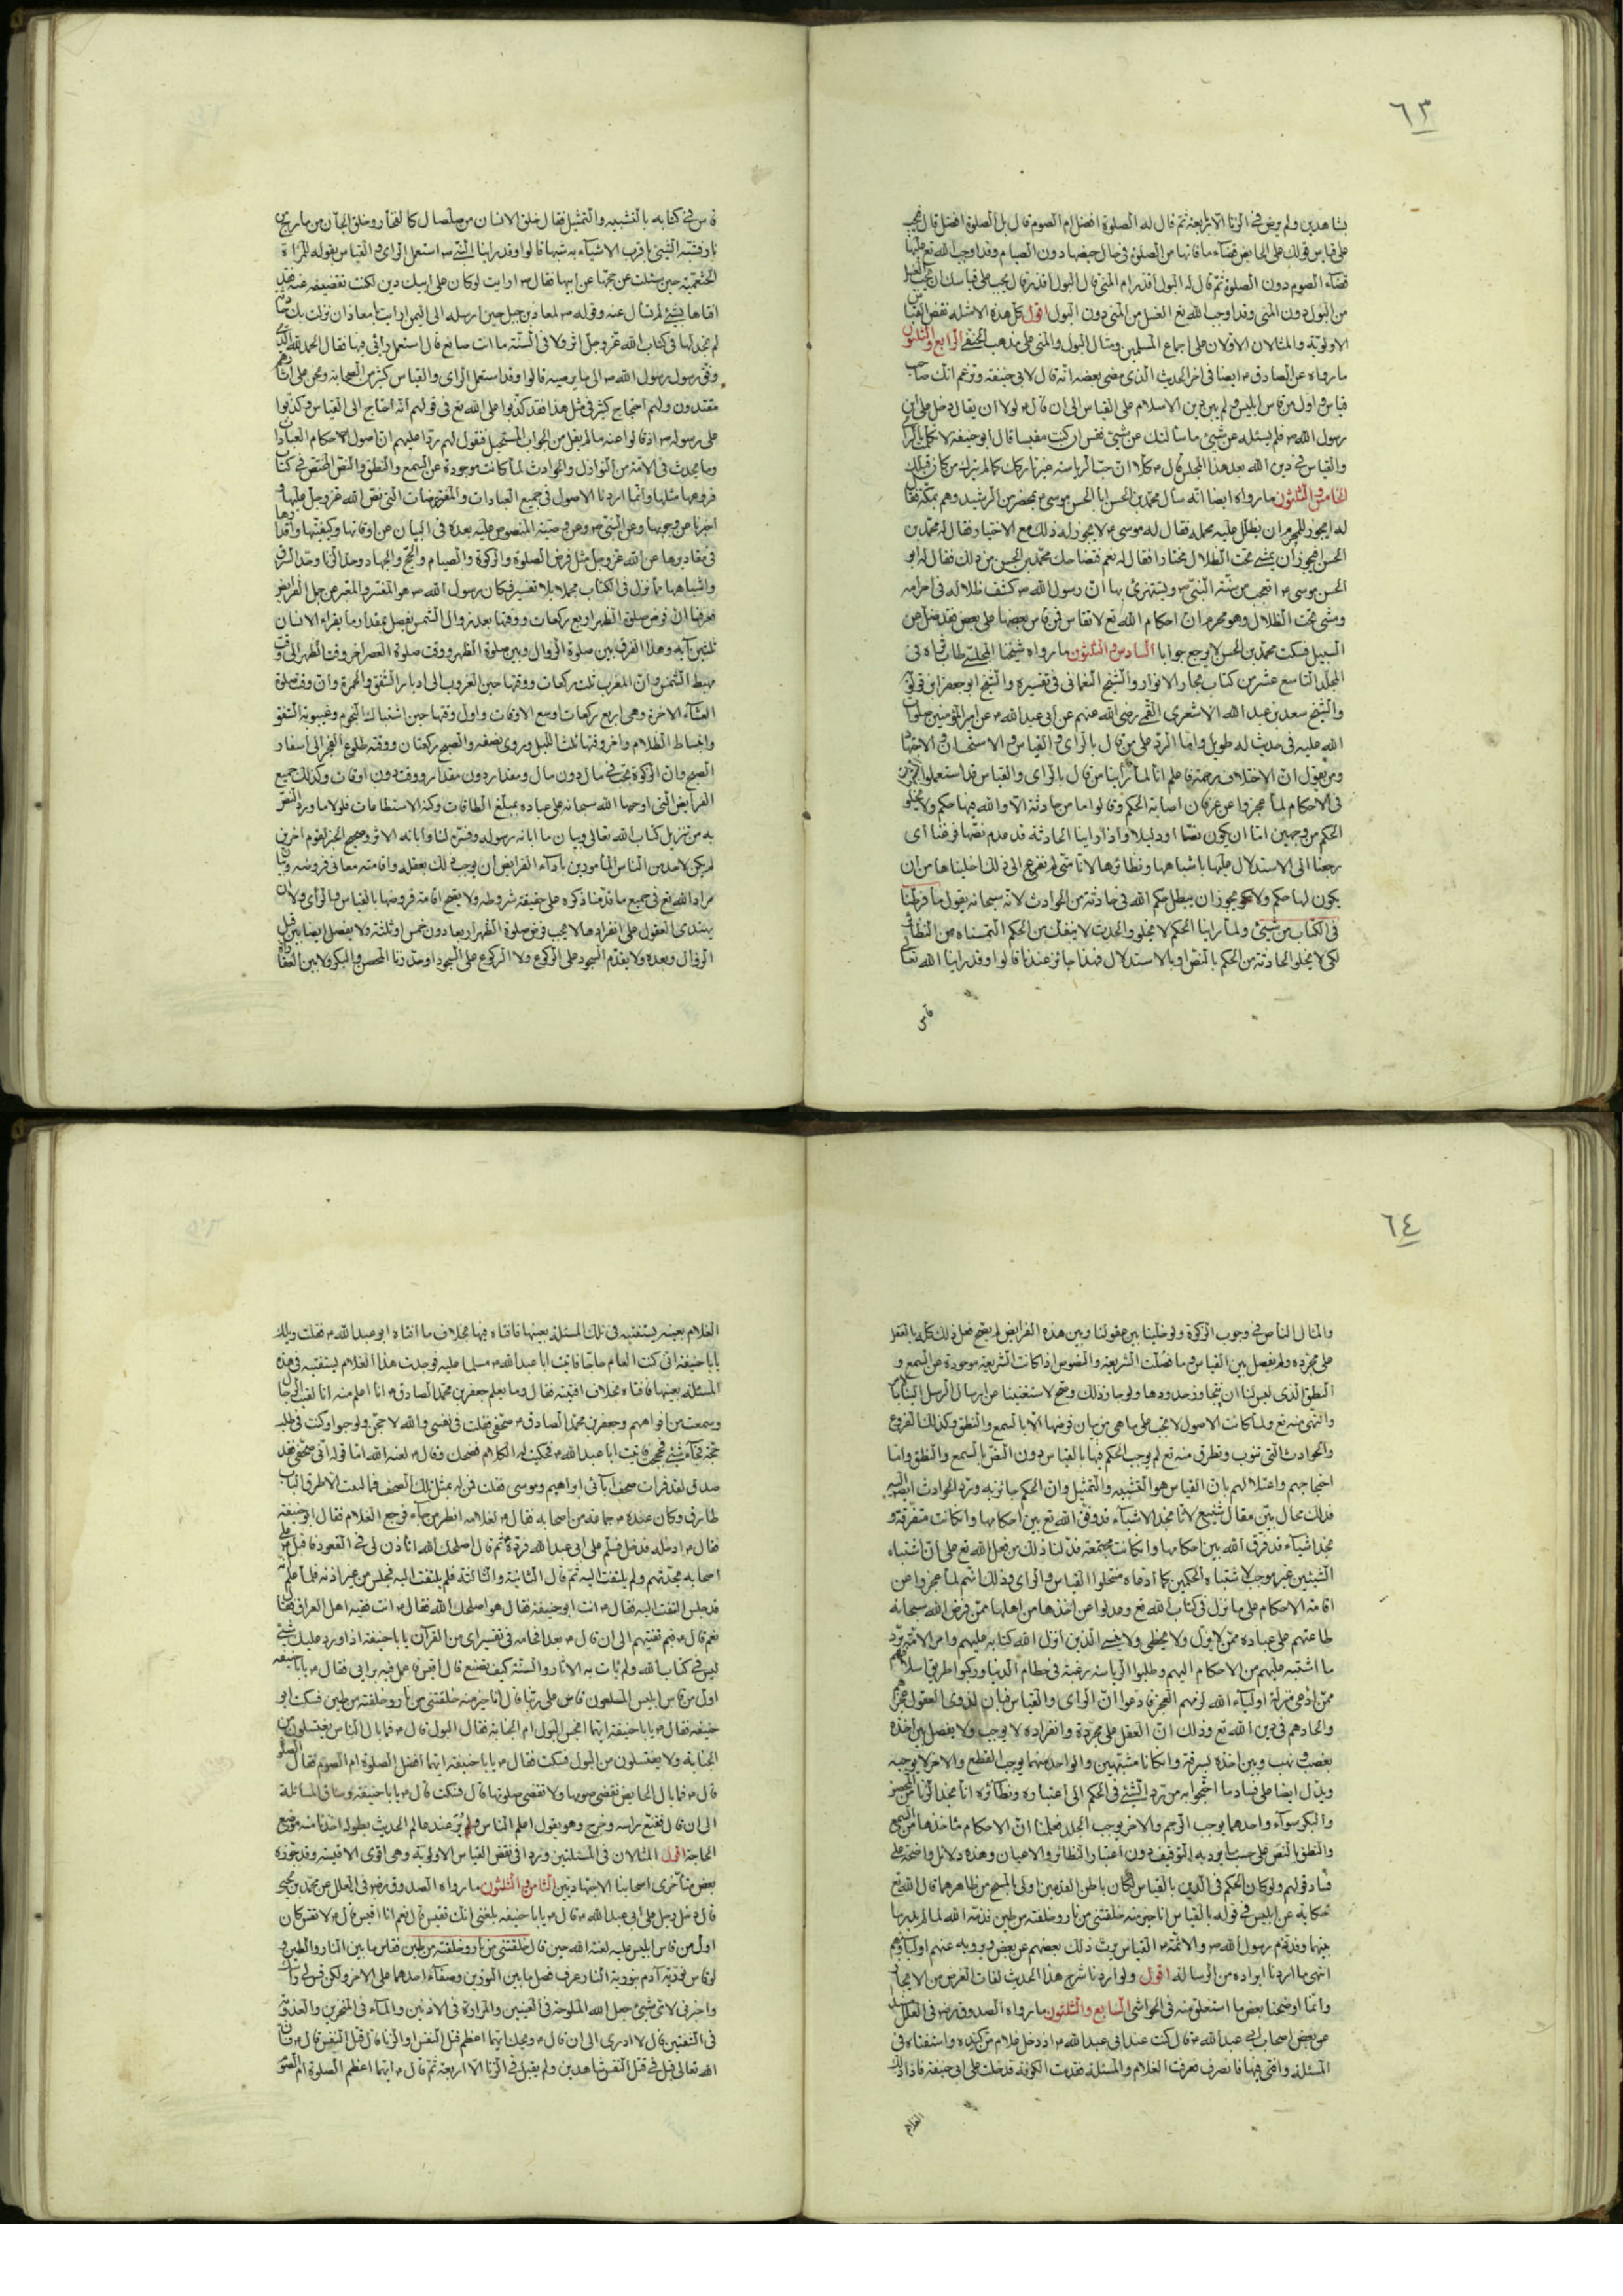 ٦٣
بشاهدين ولم يرض في الزنا الا باربعة ثم قال له الصلوة افضل ام الصوم قال بل الصلوة افضل قال فيجب
على قياس قولك على الحايض قضاء ما فاتها من الصلوة في حال حيضها دون الصيام وقد اوجب الله تع عليها
قضاء الصوم دون الصلوة ثم قال له البول اقذر ام المني قال البول اقذر قال يجب على قياسك ان يجب الغسل
من البول دون المني وقد اوجب الله تع الغسل من المني دون البول اقول كل هذه الامثلة نقض لقياس
الاولوية والمثالان الاولان على اجماع المسلمين ومثال البول والمني على مذهب الحنفي الرابع والثلثون
ما رواه عن الصادق ايضا في اخر الحديث الذي مضى بعضه انه قال لابي حنيفة وتزعم انك صاحب
قياس واول من قاس ابليس ولم يبن دين الاسلام على القياس الى ان قال لولا ان يقال دخل على ابن
رسول الله فلم يسئله عن شيء ما سألتك عن شيء فقس ان كنت مقيسا قال ابو حنيفة لا تكلمت بالرأي
والقياس في دين الله بعد هذا المجلس قال كلا ان حب الرياسة غير تاركك كما لم يترك من كان قبلك
الخامس والثلثون ما رواه ايضا انه سأل محمد بن الحسن ابا الحسن موسى بمحضر من الرشيد وهم بمكة فقال
له ايجوز للمحرم ان يظلل عليه محمله فقال له موسى لا يجوز له ذلك مع الاختيار فقال له محمد بن
الحسن افيجوز ان يمشي تحت الظلال مختارا فقال له نعم فتضاحك محمد بن الحسن من ذلك فقال له ابو
الحسن موسى اتعجب من سنة النبي وتستهزئ بها ان رسول الله كشف ظلاله في احرامه
ومشى تحت الظلال وهو محرم ان احكام الله تع لا تقاس فمن قاس بعضها على بعض فقد ضل عن
السبيل فسكت محمد بن الحسن لا يرجع جوابا السادس والثلثون ما رواه شيخنا المجلسي طاب ثراه في
المجلد التاسع عشر من كتاب بحار الانوار والشيخ النعماني في تفسيره والشيخ ابو جعفر ابن قولويه
والشيخ سعد بن عبد الله الاشعري القمي رضي الله عنهم عن ابي عبد الله عن امير المؤمنين صلوات
الله عليه في حديث له طويل واما الرد على من قال بالراي والقياس والاستحسان والاجتهاد
ومن يقول ان الاختلاف رحمة فاعلم انا لما راينا من قال بالراي والقياس قد استعملوا
في الاحكام لما عجزوا عن عرفان اصابة الحكم وقالوا ما من حادثة الا ولله فيها حكم ولا يخلو
الحكم من وجهين اما ان يكون نصا او دليلا واذا راينا الحادثة قد عدم نصها فزعنا اى
رجعنا الى الاستدلال عليها باشباهها ونظائرها لانا متى لم نفزع الى ذلك اخليناها من ان
يكون لها حكم ولا يجوز ان يبطل حكم الله في حادثة من الحوادث لانه سبحانه يقول ما فرطنا
في الكتاب من شيء ولما راينا الحكم لا يخلو والحدث لا ينفك من الحكم التمسناه من النظائر
لكى لا يخلو الحادثة من الحكم بالنص او بالاستدلال فهذا جائز عندنا قالوا وقد راينا الله تعالى
قاس
قاس في كتابه بالتشبيه والتمثيل فقال خلق الانسان من صلصال كالفخار وخلق الجان من مارج من
نار فشبه الشيء باقرب الاشياء به شبها قالوا وقد راينا النبي استعمل الراى والقياس بقوله للمراة
الخثعمية حين سئلت عن حجها عن ابيها فقال ارايت لو كان على ابيك دين لكنت تقضينه عنه فقد
افتاها بشيء لم تسأل عنه وقوله لمعاذ بن جبل حين ارسله الى اليمن ارايت يا معاذ ان نزلت بك حادثة
لم تجد لها في كتاب الله عز وجل اثر ولا في السنة ما انت صانع قال استعمل رايى فيها فقال الحمد لله الذي
وفق رسول رسول الله الى ما يرضيه قالوا وقد استعمل الراى والقياس كثير من الصحابة ونحن على اثارهم
مقتدون ولهم احتجاج كثير في مثل هذا فقد كذبوا على الله تع في قولهم انه احتاج الى القياس وكذبوا
على رسوله اذ قالوا عنه ما لم يقل من الجواب المستحيل فنقول لهم ردا عليهم ان اصول احكام العبادات
وما يحدث في الامة من النوازل والحوادث لما كانت موجودة عن السمع والنطق والنص المختص في كتاب
فروعها مثلها وانما اردنا الاصول في جميع العبادات والمفترضات التي نص الله عز وجل عليها و
اخبرنا عن وجوبها وعن النبي وعن وصيه المنصوص عليه بعده في البيان عن اوقاتها وكيفيتها واقدارها
في مقاديرها عن الله عز وجل مثل فرض الصلوة والزكوة والصيام والحج والجهاد وحد الزنا وحد السرقة
واشباهها مما نزل في الكتاب مجملا بلا تفسير فكان رسول الله هو المفسر والمعبر عن جمل الفرايض
فعرفنا ان فرض صلوة الظهر اربع ركعات ووقتها بعد زوال الشمس بفصل مقدار ما يقراء الانسان
ثلثين آية وهذا الفرق بين صلوة الزوال وبين صلوة الظهر ووقت صلوة العصر اخر وقت الظهر الى وقت
مهبط الشمس وان المغرب ثلث ركعات ووقتها حين الغروب الى ادبار الشفق والحمرة وان وقت صلوة
العشاء الاخرة وهي اربع ركعات اوسع الاوقات واول وقتها حين اشتباك النجوم وغيبوبة الشفق
وانبساط الظلام واخر وقتها ثلث الليل وروى نصفه والصبح ركعتان ووقته طلوع الفجر الى اسفار
الصبح وان الزكوة تجب في مال دون مال ومقدار دون مقدار ووقت دون اوقات وكذلك جميع
الفرايض التي اوجبها الله سبحانه على عباده بمبلغ الطاقات وكنه الاستطاعات فلولا ما ورد النص
به من تنزيل كتاب الله تعالى وبيان ما ابانه رسوله وفسره لنا وابانه الاثر وصحيح الخبر لقوم اخرين
لم يكن لاحد من الناس المامورين باداء الفرايض ان يوجب ذلك بعقله واقامته معاني فروضه وبيان
مراد الله تع في جميع ما قدمنا ذكره على حقيقة شروطه ولا يصح اقامة فروضها بالقياس والراى ولا ان
يهتدى العقول على انفرادها لا يجب فرض صلوة الظهر اربعا دون خمس او ثلث ولا يفصل ايضا بين قبل
الزوال وبعده ولا يقدم السجود على الركوع ولا الركوع على السجود او حد زنا المحصن والبكر ولا بين العقار
٦٤
والمال الناض في وجوب الزكوة ولو خلينا بين عقولنا وبين هذه الفرايض لم يصح فعل ذلك كله بالعقل
على مجرده ولم نفصل بين القياس وما فصلت الشريعة والنصوص اذا كانت الشريعة موجودة عن السمع و
النطق الذي ليس لنا ان نتجاوز حدودها ولو جاز ذلك وصح لاستغنينا عن ارسال الرسل الينا بالامر
والنهى منه تع ولما كانت الاصول لا تجب على ما هى من بيان فرضها الا بالسمع والنطق وكذلك الفروع
والحوادث التي تنوب وتطرق منه تع لم يوجب الحكم فيها بالقياس دون النص بالسمع والنطق واما
احتجاجهم واعتلالهم بان القياس هو التشبيه والتمثيل وان الحكم جائز به ورد الحوادث ايضا اليه
فذلك محال بين مقال شنيع لانا نجد الاشياء قد وفق الله تع بين احكامها وان كانت متفرقة و
نجد اشياء قد فرق الله بين احكامها وان كانت مجتمعة فدلنا ذلك من فعل الله تع على ان اشتباه
الشيئين غير موجب لاشتباه الحكمين كما ادعاه منتحلوا القياس والراى وذلك انهم لما عجزوا عن
اقامة الاحكام على ما نزل في كتاب الله تع وعدلوا عن اخذها من اهلها ممن فرض الله سبحانه
طاعتهم على عباده ممن لا يزل ولا يخطى ولا ينسى الذين انزل الله كتابه عليهم وامر الامة برد
ما اشتبه عليهم من الاحكام اليهم وطلبوا الرياسة رغبة في حطام الدنيا وركبوا طريق اسلافهم
ممن ادعى منزلة اولياء الله لزمهم العجز فادعوا ان الراى والقياس فبان لذوى العقول عجزهم
والحادهم في دين الله تع وذلك ان العقل على مجرده وانفراده لا يوجب ولا يفصل بين اخذه
بغصب ونهب وبين اخذه بسرقة وان كانا مشتبهين والواحد منهما يوجب القطع والاخر لا يوجبه
ويدل ايضا على فساد ما احتجوا به من رد الشيء في الحكم الى اعتباره ونظائره انا نجد الزنا من المحصن
والبكر سواء واحدهما يوجب الرجم والاخر يوجب الجلد فعلمنا ان الاحكام ماخذها من السمع
والنطق بالنص على حسب ما يرد به التوقيف دون اعتبار النظائر والاعيان وهذه دلائل واضحة على
فساد قولهم ولو كان الحكم في الدين بالقياس لكان باطن القدمين اولى بالمسح من ظاهرهما قال الله تع
حكاية عن ابليس في قوله بالقياس انا خير منه خلقتني من نار وخلقته من طين فذمه الله لما لم يدر ما
بينهما وقد ذم رسول الله والائمة القياس يرث ذلك بعضهم عن بعض ويرويه عنهم اولياؤهم
انتهى ما اردنا ايراده من الرسالة اقول ولو اردنا شرح هذا الحديث لفات الغرض من الايجاز
وانما اوضحنا بعض ما استغلق منه في الحواشي السابع والثلثون ما رواه الصدوق في العلل
عن بعض اصحاب ابي عبد الله قال كنت عند ابي عبد الله اذ دخل غلام من كندة واستفتاه في
المسئلة وافتى فيها فانصرف فعرفت الغلام والمسئلة فقدمت الكوفة فدخلت على ابي حنيفة فاذا ذلك
الغلام
الغلام بعينه يستفتيه في تلك المسئلة بعينها فافتاه فيها بخلاف ما افتاه ابو عبد الله فقلت ويلك
يا با حنيفة اني كنت العام حاجا فاتيت ابا عبد الله مسلما عليه فوجدت هذا الغلام يستفتيه في هذه
المسئلة بعينها فافتاه بخلاف افتيته فقال وما يعلم جعفر بن محمد الصادق انا اعلم منه انا لقيت الرجال
وسمعت من افواههم وجعفر بن محمد الصادق صحفي فقلت في نفسي والله لاحجن ولو حبوا وكنت في طلب
حجة فجاءتني حجة فحججت فاتيت ابا عبد الله فحكيت له الكلام فضحك وقال لعنه الله اما قوله اني صحفي فقد
صدق لقد قرات صحف آبائى ابراهيم وموسى فقلت فمن له بمثل تلك الصحف فما لبثت ان طرق الباب
طارق وكان عنده جماعة من اصحابه فقال لغلامه انظر من جاء فرجع الغلام فقال ابو حنيفة
فقال ادخله فدخل فسلم على ابي عبد الله فرد ثم قال اصلحك الله اتأذن لي في القعود فاقبل على
اصحابه يحدثهم ولم يلتفت اليه ثم قال الثانية والثالثة فلم يلتفت اليه فجلس من غير اذنه فلما علم انه
قد جلس التفت اليه فقال انت ابو حنيفة فقال هو اصلحك الله فقال انت فقيه اهل العراق فقال
نعم قال فبم تفتيهم الى ان قال بعد افحامه في تفسير اى من القرآن يا با حنيفة اذا ورد عليك شيء
ليس في كتاب الله ولم يأت به الاثار والسنة كيف تصنع قال اقيس واعمل فيه برايى فقال يا با حنيفة
اول من قاس ابليس الملعون قاس على ربنا فقال انا خير منه خلقتني من نار وخلقته من طين فسكت ابو
حنيفة فقال يا با حنيفة ايما انجس البول ام الجنابة فقال البول قال فما بال الناس يغتسلون من
الجنابة ولا يغتسلون من البول فسكت فقال يا با حنيفة ايما افضل الصلوة ام الصوم فقال الصلوة
قال فما بال الحايض تقضى صومها ولا تقضى صلوتها قال فسكت قال يا با حنيفة وساق المسائلة
الى ان قال فقنع راسه وخرج وهو يقول اعلم الناس ولم نره عند عالم الحديث بطوله اخذنا منه موضع
الحاجة اقول المثالان في المسئلتين وردا في نقض القياس الاولوية وهى اقوى الاقيسة وقد جوزه
بعض متأخرى اصحابنا الاجتهاديين الثامن والثلثون ما رواه الصدوق في العلل عن محمد بن يحيى
قال دخل رجل على ابي عبد الله قال يا با حنيفة بلغني انك تقيس قال نعم انا اقيس قال لا تقس فان
اول من قاس ابليس عليه لعنة الله حين قال خلقتني من نار وخلقته من طين فقاس ما بين النار والطين و
لو قاس نورية آدم بنورية النار عرف فضل ما بين النورين وصفاء احدهما على الاخر ولكن قس لي راسك
واخبرني لاى شيء جعل الله الملوحة في العينين والمرارة في الاذنين والماء في المنخرين والعذوبة
في الشفتين قال لا ادرى الى ان قال ويحك ايما اعظم قتل النفس او الزنا قال قتل النفس قال فان
الله تعالى قبل في قتل النفس شاهدين ولم يقبل في الزنا الا اربعة ثم قال ايما اعظم الصلوة ام الصوم